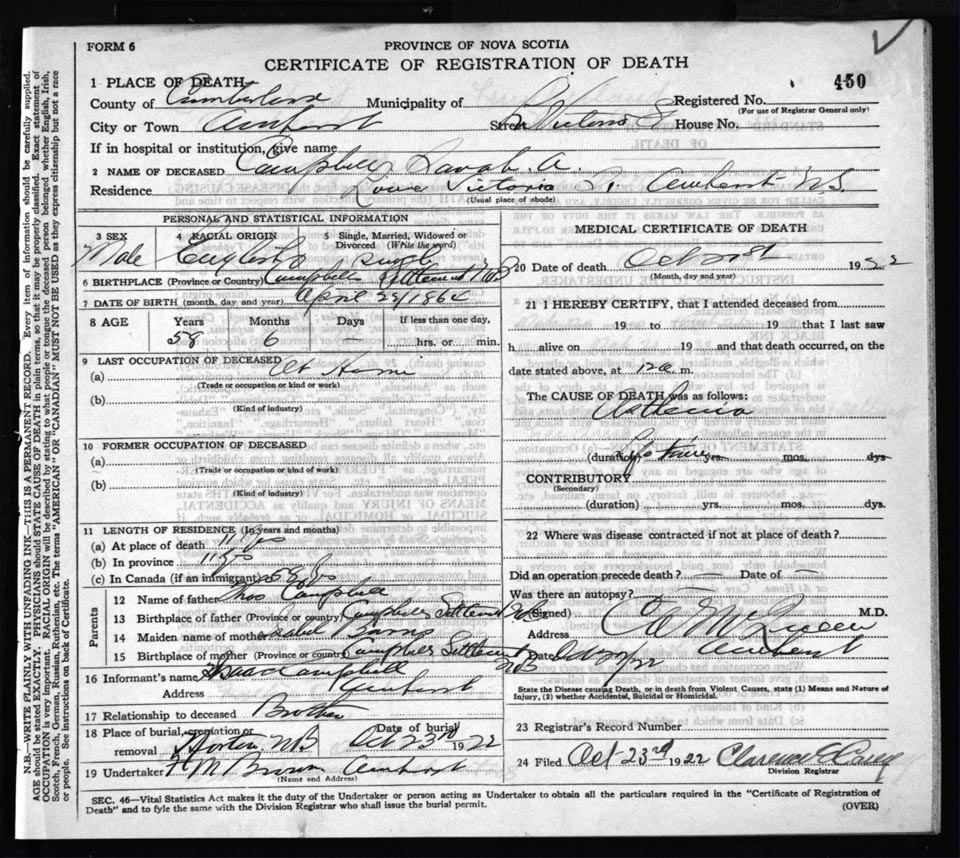 FORM 6
PROVINCE OF NOVA SCOTIA
CERTIFICATE OF REGISTRATION OF DEATH
450
1 PLACE OF DEATH
County of Cumberland Municipality of Registered No.
(For use of Registrar General only)
City or Town Amherst Street Victoria St House No.
If in hospital or institution, give name
2 NAME OF DECEASED Campbell A.
Residence Lower Victoria St. Amherst N.S.
(Usual place of abode)
PERSONAL AND STATISTICAL INFORMATION
3 SEX 4 RACIAL ORIGIN 5 Single, Married, Widowed or Divorced (Write the word)
Male English Single
6 BIRTHPLACE (Province or Country) Campbells Settlement N.B
7 DATE OF BIRTH (month, day and year) April 22/1864
8 AGE Years Months Days If less than one day,
58 6 — hrs. or min.
9 LAST OCCUPATION OF DECEASED
(a) At Home
(Trade or occupation or kind or work)
(b)
(Kind of industry)
10 FORMER OCCUPATION OF DECEASED
(a)
(Trade or occupation or kind or work)
(b)
(Kind of industry)
11 LENGTH OF RESIDENCE (In years and months)
(a) At place of death 11 yrs
(b) In province 11 yrs
(c) In Canada (if an immigrant) 58 yrs
Parents
12 Name of father Thos Campbell
13 Birthplace of father (Province or country) Campbells Settlement N.B
14 Maiden name of mother Isabel
15 Birthplace of mother (Province or country) Campbells Settlement N.B
16 Informant's name Isaac Campbell
Address Amherst
17 Relationship to deceased Brother
18 Place of burial, cremation or removal Date of burial
N.B Oct 23rd 1922
19 Undertaker F M Brown Amherst
(Name and Address)
MEDICAL CERTIFICATE OF DEATH
20 Date of death Oct 21st 1922
(Month, day and year)
21 I HEREBY CERTIFY, that I attended deceased from
19 to 19 that I last saw
h alive on 19 and that death occurred, on the
date stated above, at 12 a m.
The CAUSE OF DEATH was as follows:
Asthenia
(duration) yrs. mos. dys
CONTRIBUTORY
(Secondary)
(duration) yrs. mos. dys.
22 Where was disease contracted if not at place of death?
Did an operation precede death? — Date of —
Was there an autopsy?
(Signed) McQueen M.D.
Address Amherst
Date Oct /22
State the Disease causing Death, or in death from Violent Causes, state (1) Means and Nature of Injury, (2) whether Accidental, Suicidal or Homicidal.
23 Registrar's Record Number
24 Filed Oct 23rd 1922 Clarence Casey
Division Registrar
SEC. 46—Vital Statistics Act makes it the duty of the Undertaker or person acting as Undertaker to obtain all the particulars required in the "Certificate of Registration of
Death" and to fyle the same with the Division Registrar who shall issue the burial permit.
(OVER)
N.B.—WRITE PLAINLY WITH UNFADING INK—THIS IS A PERMANENT RECORD. Every item of information should be carefully supplied.
AGE should be stated EXACTLY. PHYSICIANS should STATE CAUSE OF DEATH in plain terms, so that it may be properly classified. Exact statement of
OCCUPATION is very important. RACIAL ORIGIN will be described by stating to what people or tongue the deceased person belonged whether English, Irish,
Scotch, French, German, Russian, Ruthenian, etc. The terms "AMERICAN" OR "CANADIAN" MUST NOT BE USED as they express citizenship but not a race
or people. See instructions on back of Certificate.